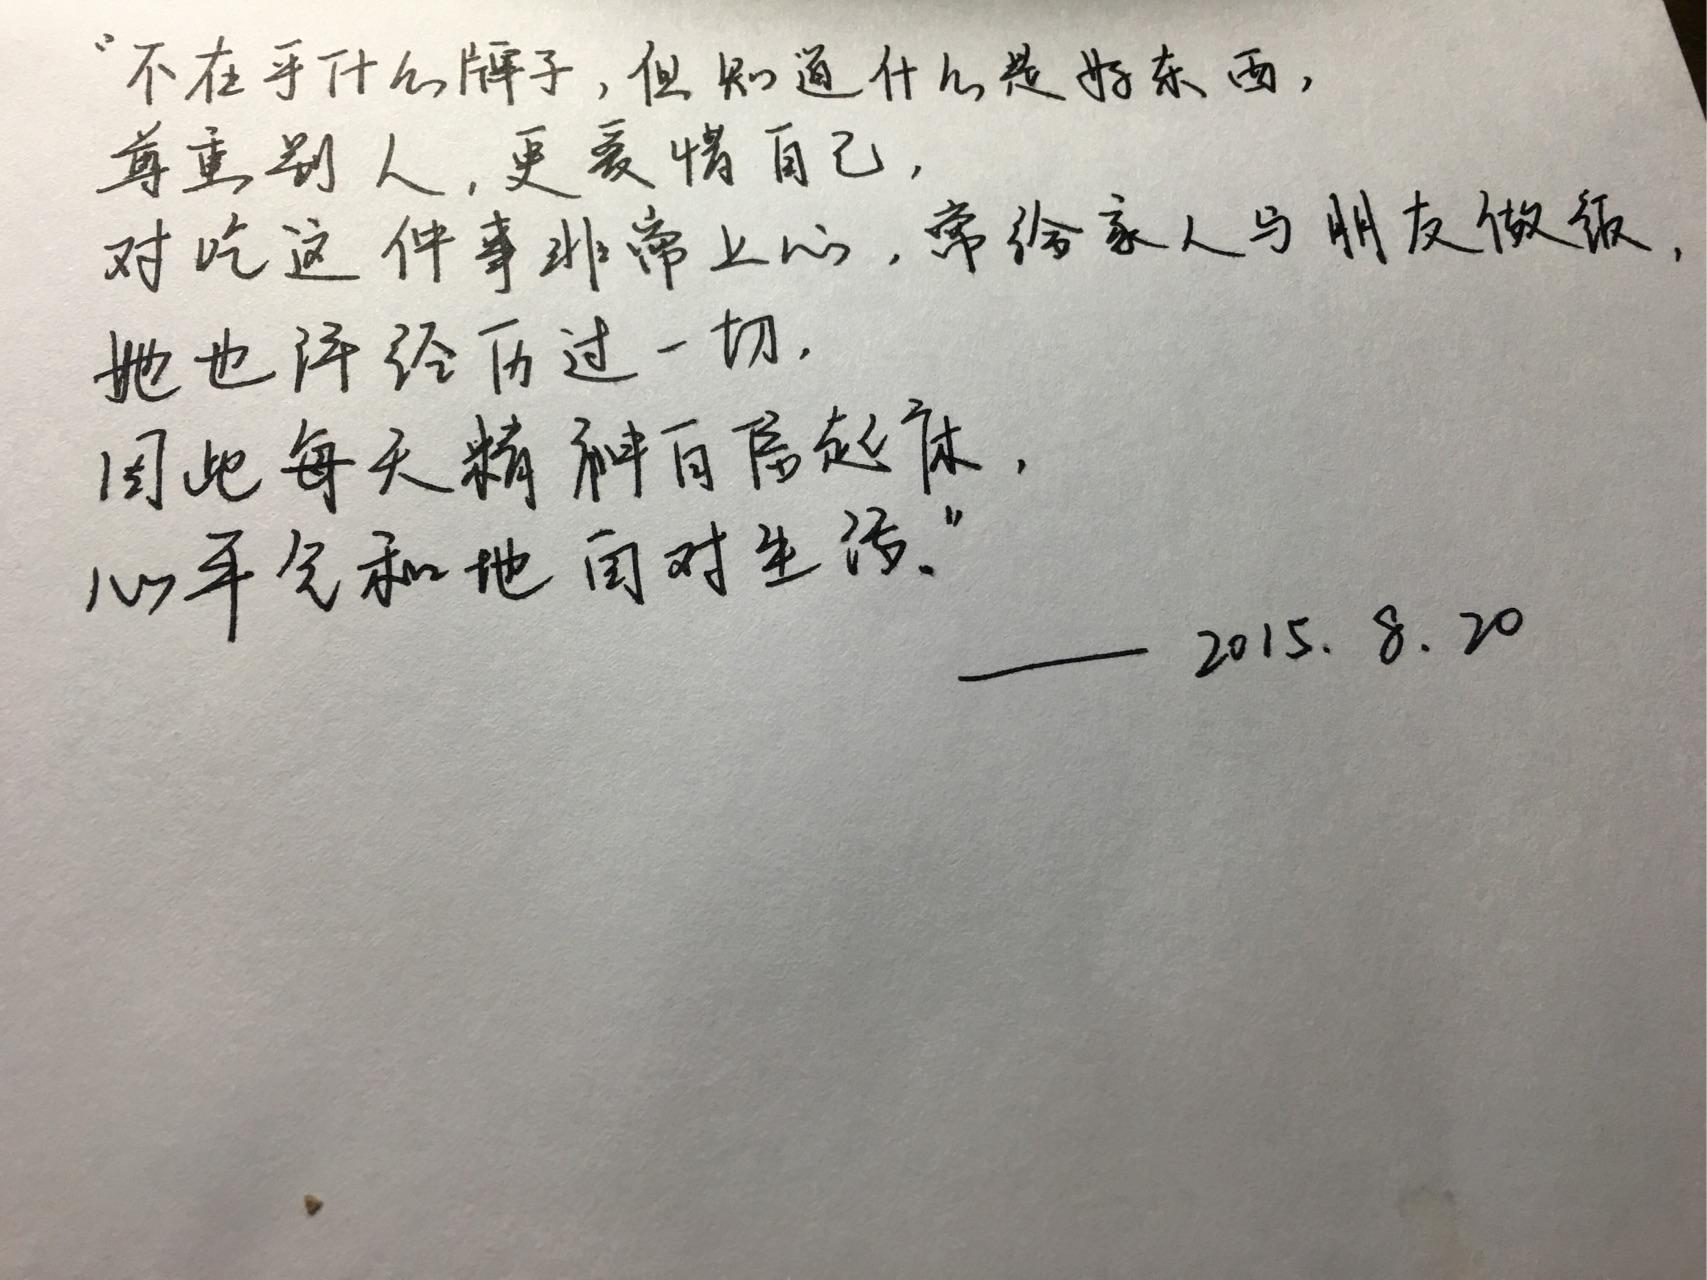 “不在乎什么牌子，但知道什么是好东西，
尊重别人，更爱惜自己，
对吃这件事非常上心，常给家人与朋友做饭，
她也许经历过一切，
因此每天精神百倍起床，
心平气和地面对生活。”
—— 2015.8.20